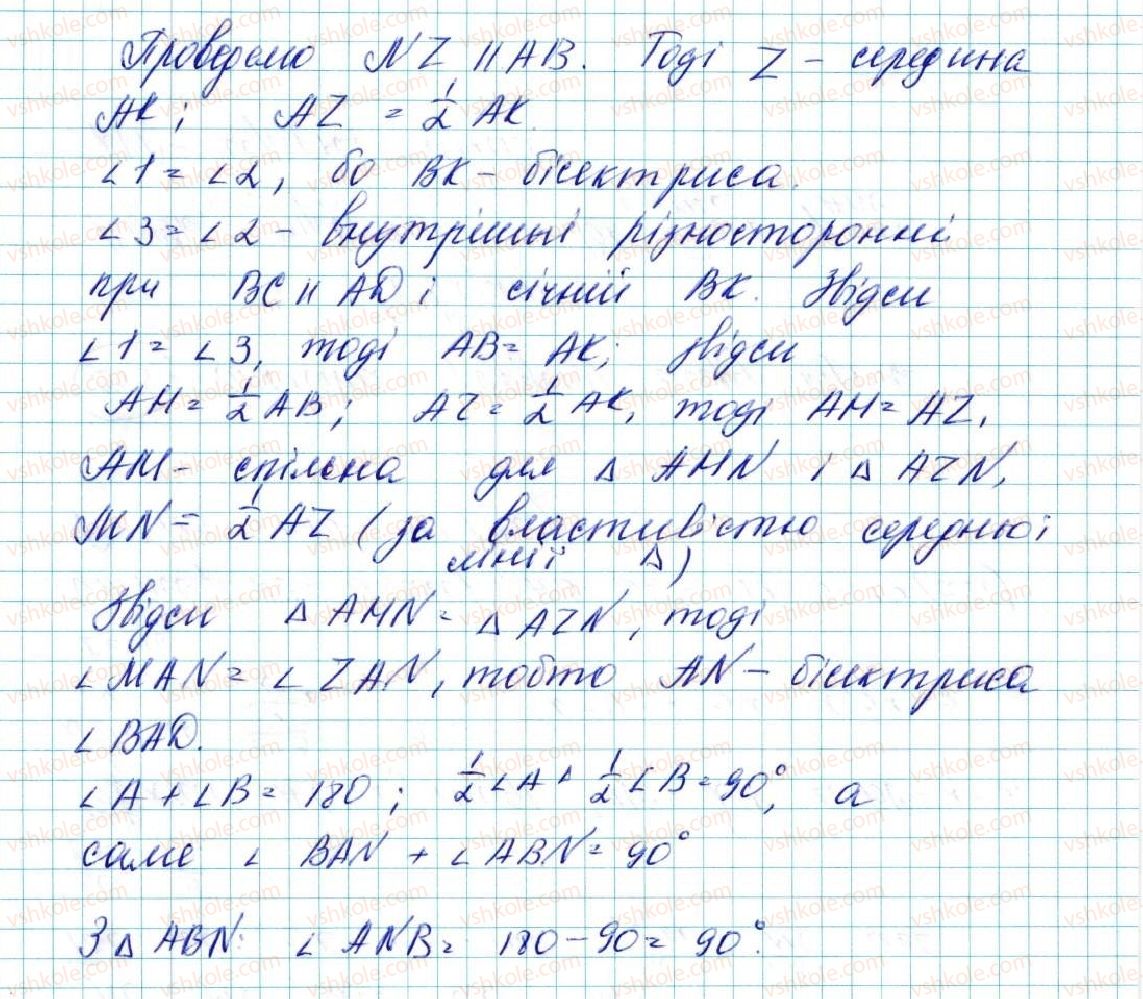 Проведемо NZ || AB. Тоді Z – середина
AK; AZ = 1/2 AK.
∠1 = ∠2, бо BK – бісектриса.
∠3 = ∠2 – внутрішні різносторонні
при BC || AD і січній BK. Звідси
∠1 = ∠3, тоді AB = AK; звідси
AM = 1/2 AB; AZ = 1/2 AK, тоді AM = AZ,
AM – спільна для △ AMN і △ AZN,
MN = 1/2 AZ (за властивістю середньої
лінії △)
Звідси △ AMN = △ AZN, тоді
∠MAN = ∠ZAN, тобто AN – бісектриса
∠BAD.
∠A + ∠B = 180; 1/2 ∠A + 1/2 ∠B = 90°, а
саме ∠ BAN + ∠ ABN = 90°
З △ ABN: ∠ ANB = 180 – 90 = 90°.
vshkole.com